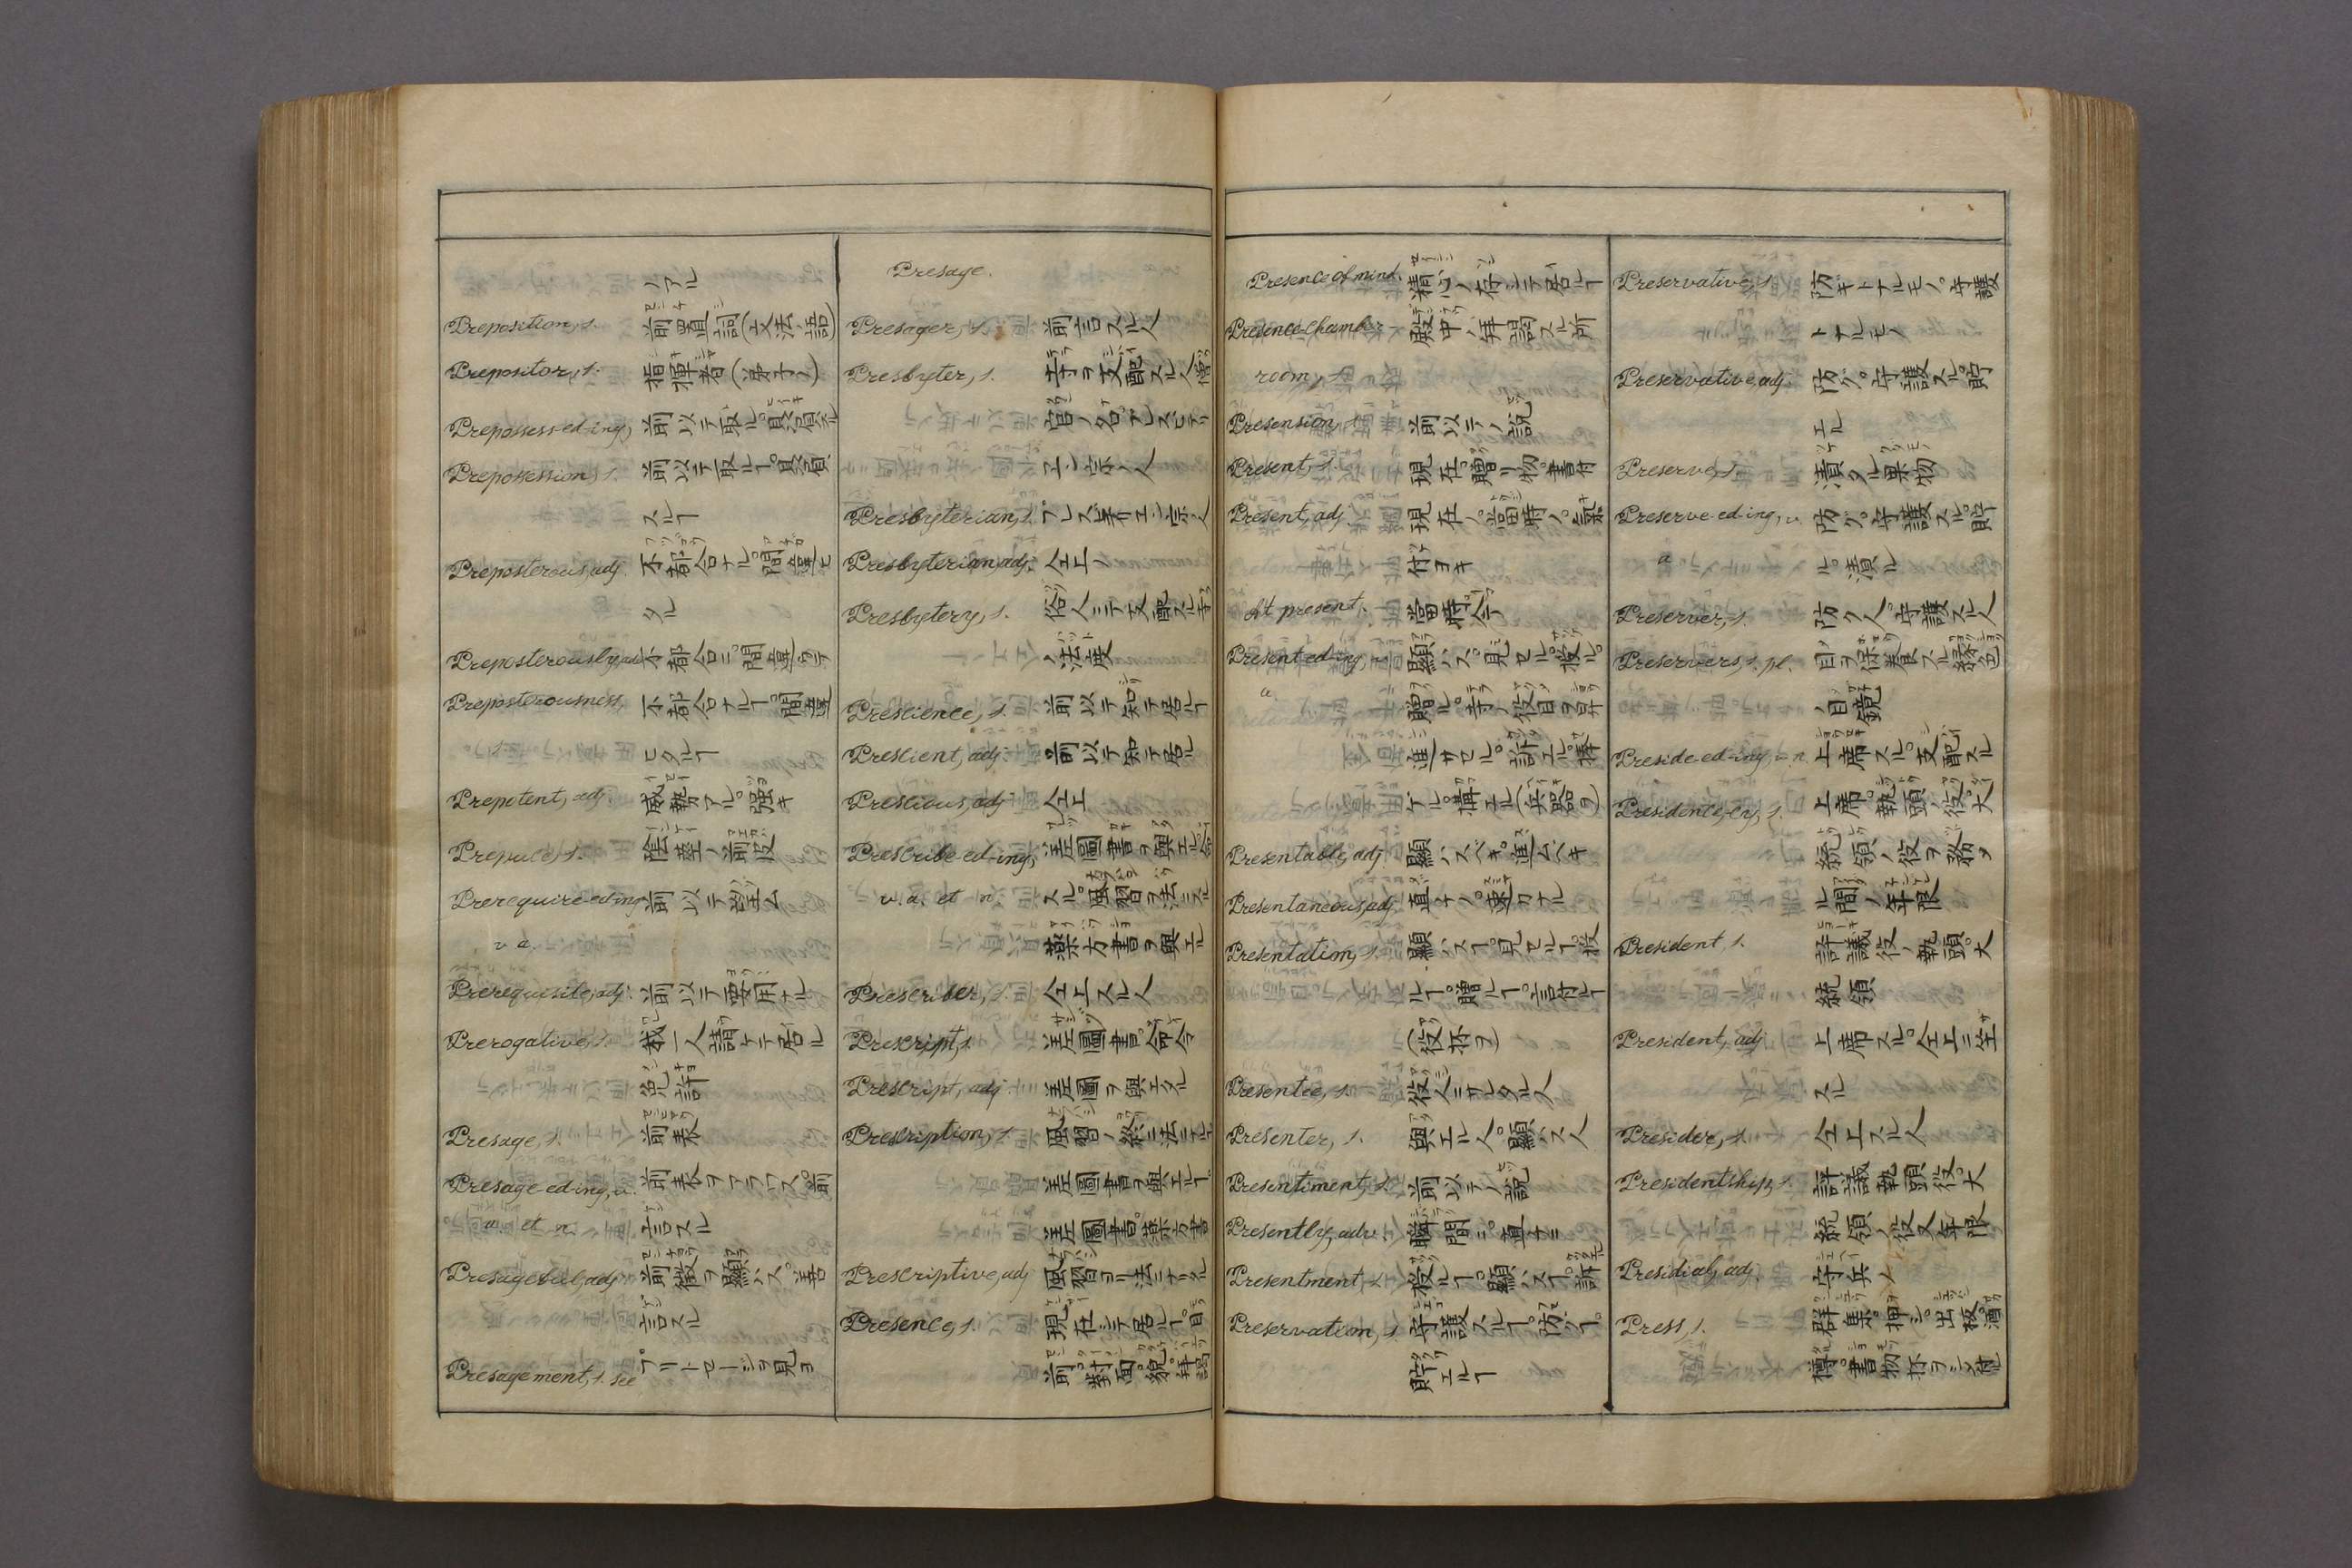 ノアル
Preposition, s. 前置詞(文法ノ語)
Prepositor, s. 指揮者(弟子ノ)
Prepossess-ed-ing, 前以テ取ル。
Prepossession, s. 前以テ取ルヿ。
スルヿ
Preposterous, adj. 不都合ナル。間違ヒ
タル
Preposterously, 不都合ニ。間違ヲテ
Preposterousness, 不都合ナルヿ。間違
s. ヒタルヿ
Prepotent, adj. 威勢アル。強キ
Prepuce, s. 陰莖ノ前皮
Prerequire-ed-ing 前以テ望ム
v. a.
Prerequisite, adj. 前以テ要用ナル
Prerogative, s. 我一人請ケテ居ル
免許
Presage, s. 前表
Presage-ed-ing, v. 前表ヲアラワス。前
a. et n. 言スル
Presageful, adj. 前徴ヲ顕ハス。
言スル
Presagement, s. see プリトセージヲ見ヨ
Presage.
Presager, s. 前言スル人
Presbyter, s. 寺ヲ支配スル人。僧
官ノ名。プレスビテリ
エン宗ノ人
Presbyterian, s. プレスビテリエン宗ノ人
Presbyterian, adj. 仝上ノ
Presbytery, s. 俗人ニテ支配スル寺
ノ法度
Prescience, s. 前以テ知テ居ルヿ
Prescient, adj. 前以テ知テ居ル
Prescious, adj. 仝上
Prescribe-ed-ing, 差圖書ヲ與エル。命
v. a. et n. スル。風習ヲ法ニスル
藥方書ヲ與エル
Prescriber, s. 仝上スル人
Prescript, s. 差圖書。命令
Prescript, adj. 差圖ヲ與エタル
Prescription, s. 風習ノ終ニ法ニナル
差圖書ヲ與エルヿ。
差圖書。藥方書
Prescriptive, adj. 風習ヨリ法ニナリタル
Presence, s. 現在シテ居ルヿ。目
前。對面。貌。拝謁
Presence of mind. 精心ノ存シテ居ルヿ
Presence-chamb- 殿中ノ拝謁スル所
room, s.
Presension, s. 前以テノ説
Present, s. 現在。贈リ物。書付
Present, adj. 現在ノ。當時ノ。氣
付ヨキ
At present. 當時。今
Present-ed-ing, v. 顕ハス。見セル。授ル。
a. 贈ル。寺ノ役目ヲ昇
進サセル。訴エル。捧
ゲル。構エル(兵器ヲ)
Presentable, adj. 顕ハスベキ。進ムベキ
Presentaneous, adj. 直ナノ。速カナル
Presentation, s. 顕ハスヿ。見セルヿ。授
ルヿ。贈ルヿ。言付ルヿ
(役杯ヲ)
Presentee, s. 役人ニサレタル人
Presenter, s. 與エル人。顕ハス人
Presentiment, s. 前以テノ説
Presently, adv. 瞬間ニ。直ナニ
Presentment, s. 授ルヿ。顕ハスヿ。訴
Preservation, s. 守護スルヿ。防グヿ。
貯エルヿ
Preservative, s. 防ギトナルモノ。守護
トナルモノ
Preservative, adj. 防グ。守護スル。貯
エル
Preserve, s. 漬タル果物
Preserve-ed-ing, v. 防グ。守護スル。貯
a. ル。漬ル
Preserver, s. 防グ人。守護スル人
Preservers, s. pl. 目ヲ保養スル緑色
ノ目鏡
Preside-ed-ing, v. n. 上席スル。支配スル
Presidence, cy, s. 上席。執頭ノ役。大
統領ノ役ヲ務メ
ル間ノ年限
President, s. 評議役ノ執頭。大
統領
President, adj. 上席スル。仝上ニ坐
スル
Presider, s. 仝上スル人
Presidentship, s. 評議執頭役。大
統領ノ役又年限
Presidial, adj. 守兵ノ
Press, s. 群集。押シ。出板。酒
搾。書物杯ヲ